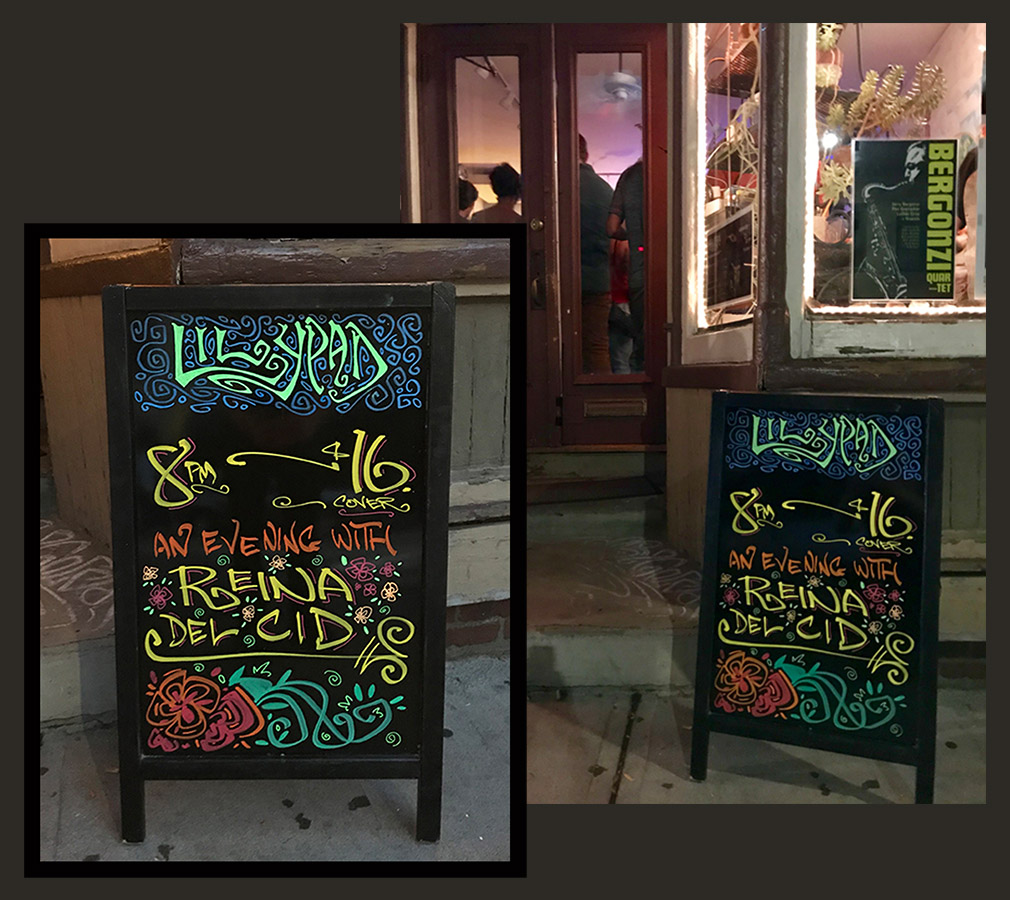 LILYPAD
8PM $16.
COVER
AN EVENING WITH
REINA
DEL CID
BERGONZI
QUAR
TET
LILYPAD
8PM $16.
COVER
AN EVENING WITH
REINA
DEL CID